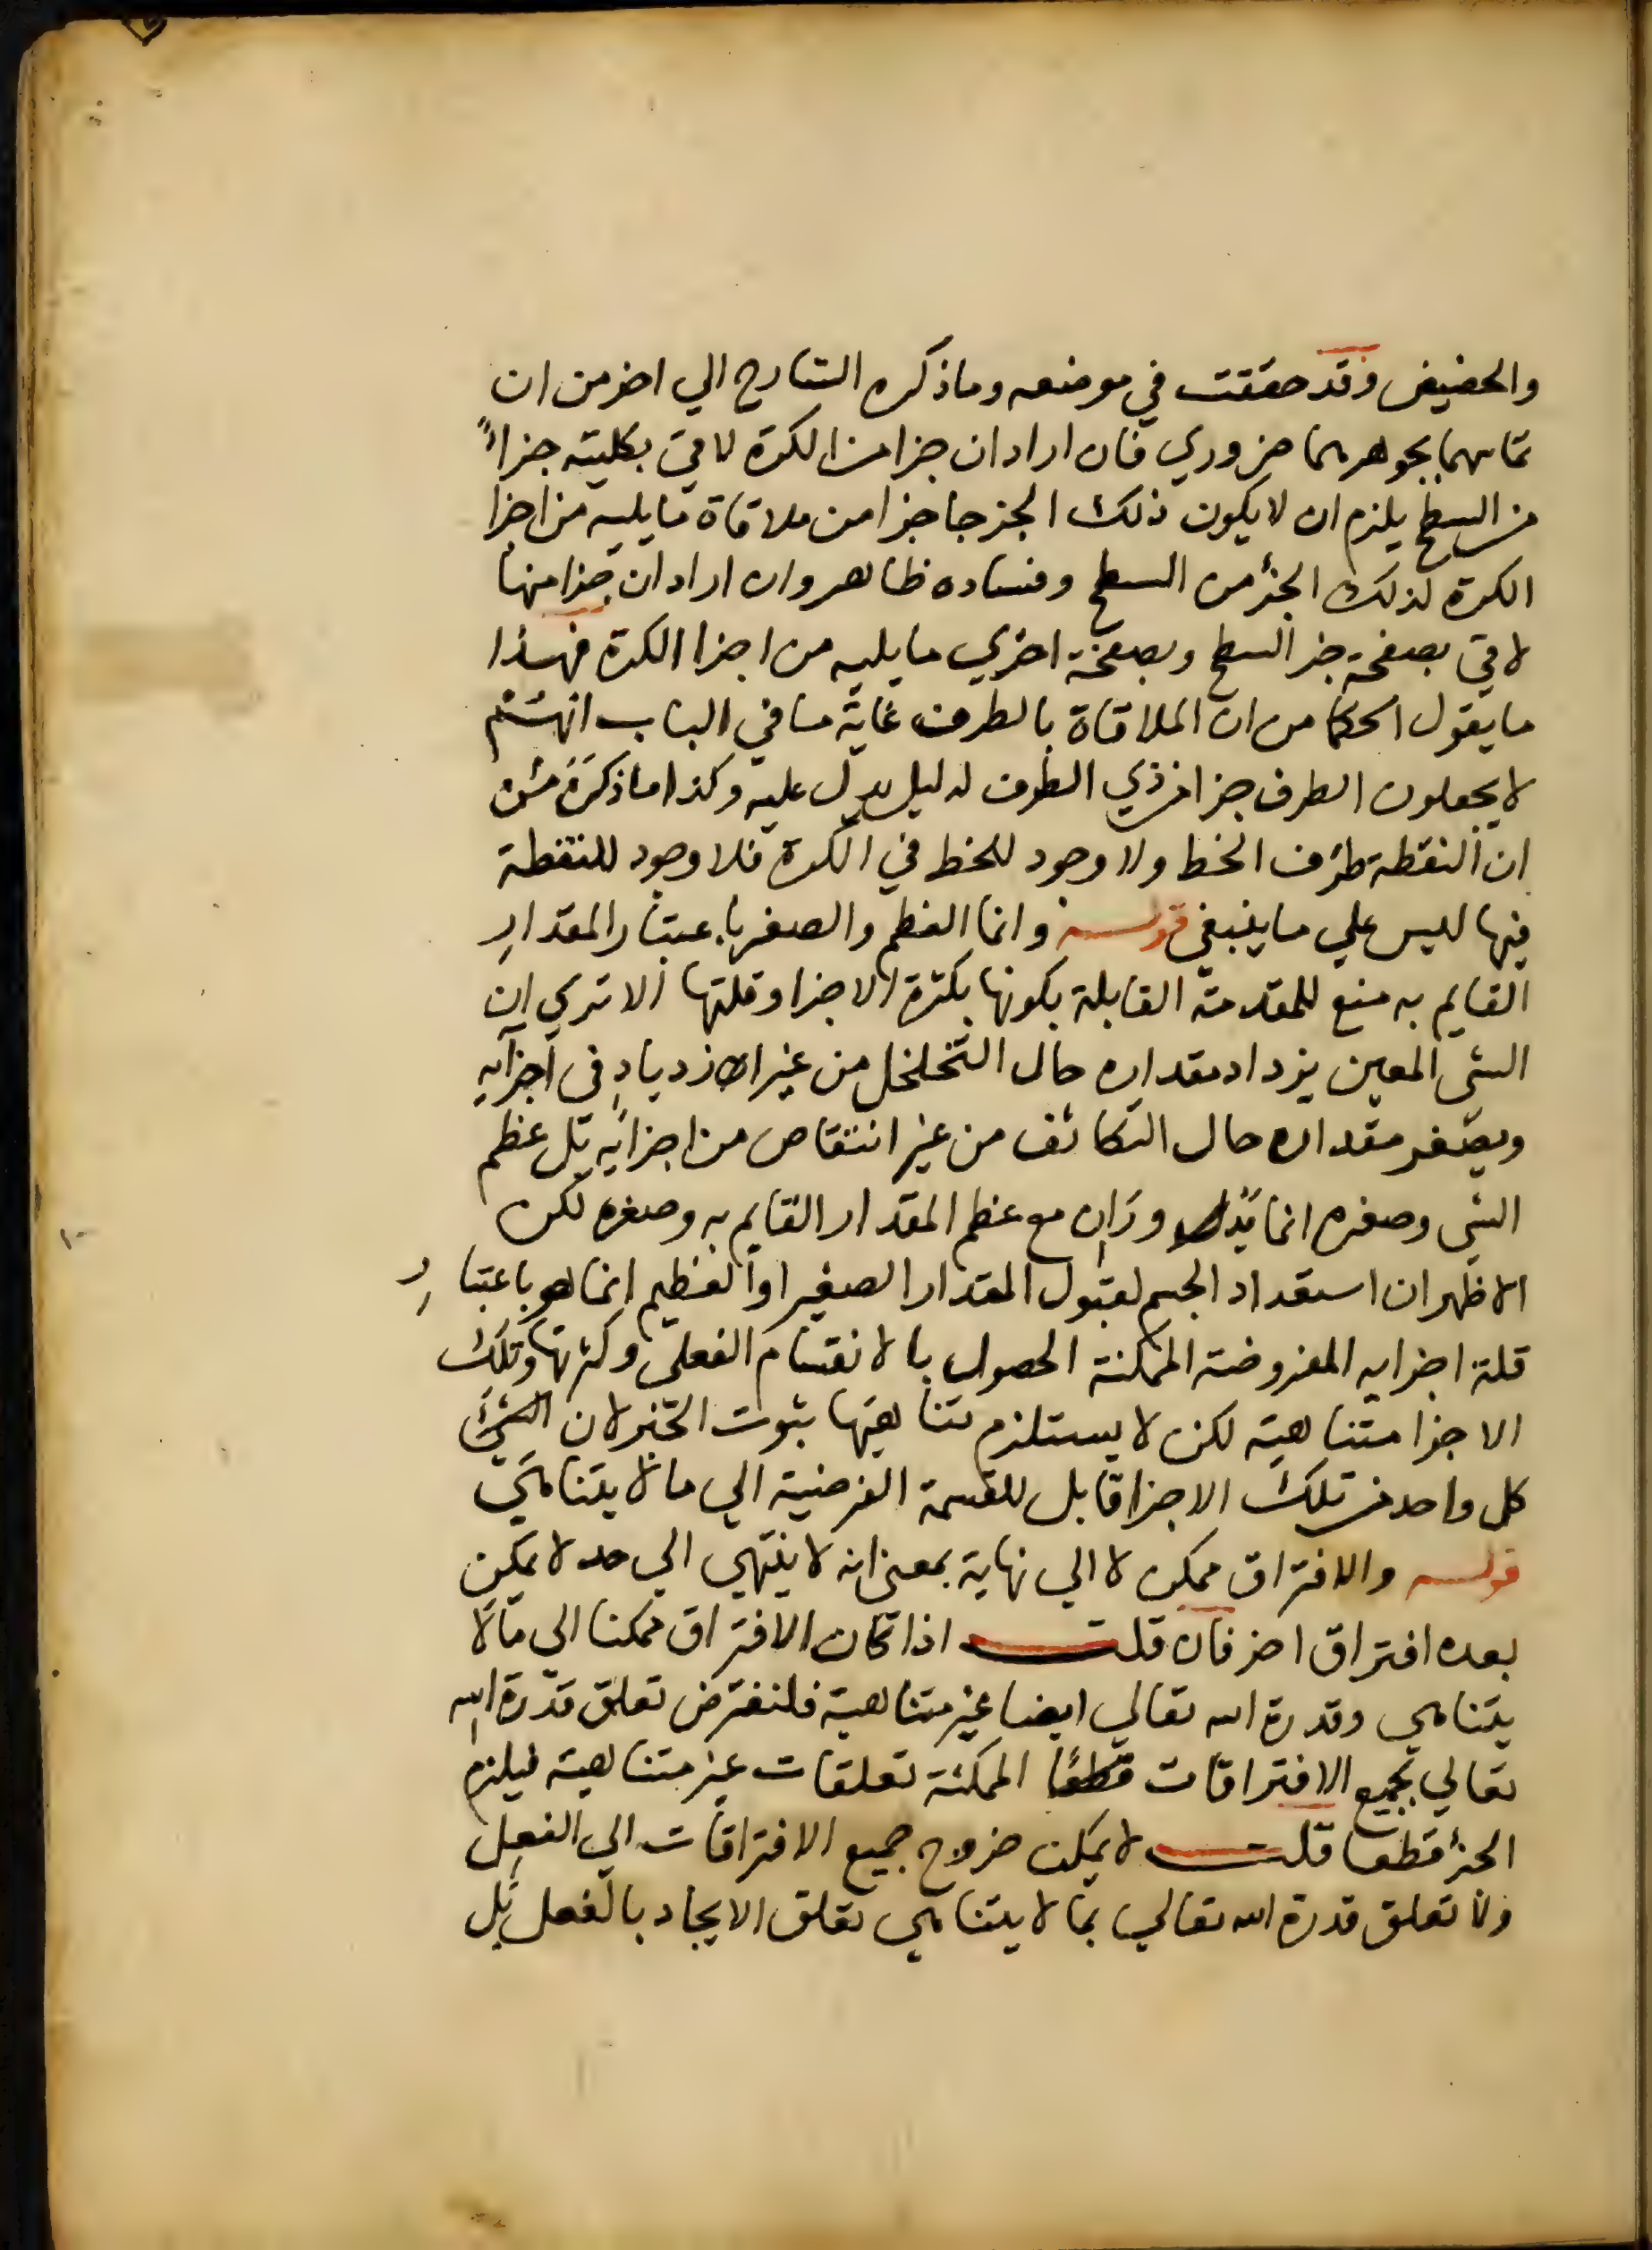 والحضيض وقد حققت في موضعه وما ذكره الشارح الي اخر من ان
تماسهما بجوهرهما ضروري فان اراد ان جزا من الكرة لاقي بكليته جزاً
من السطح يلزم ان لا يكون ذلك الجز حاجزا من ملاقاة ما يليه من اجزا
الكرة لذلك الجزء من السطح وفساده ظاهر وان اراد ان جزا منها
لاقي بصفحة جز السطح وبصفحة اخري ما يليه من اجزا الكرة فهذا
ما يقول الحكما من ان الملاقاة بالطرف غاية ما في الباب انهم
لا يجعلون الطرف جزا من ذي الطرف لدليل يدل عليه وكذا ما ذكره من
ان النقطة طرف الخط ولا وجود للخط في الكرة فلا وجود للنقطة
فيها ليس علي ما ينبغي قوله وانما العظم والصغر باعتبار المقدار
القايم به منع للمقدمة القابلة بكونها بكثرة الاجزا وقلتها الا تري ان
الشي المعين يزداد مقداره حال التخلخل من غير الازدياد في اجزآيه
ويصغر مقداره حال التكاثف من غير انتقاص من اجزايه بل عظم
الشي وصغره انما يدوران مع عظم المقدار القايم به وصغره لكن
الاظهر ان استعداد الجسم لقبول المقدار الصغير او العظيم انما هو باعتبار
قلة اجزايه المفروضة الممكنة الحصول بالانقسام الفعلي وكثرتها وتلك
الاجزا متناهية لكن لا يستلزم تناهيها ثبوت الجز لان الشئ
كل واحد من تلك الاجزا قابل للقسمة الفرضية الي ما لا يتناهي
قوله والافتراق ممكن لا الي نهاية بمعني انه لا ينتهي الي حد لا يمكن
بعده افتراق اخر فان قلت اذا كان الافتراق ممكنا الي ما لا
يتناهي وقدرة الله تعالي ايضا غير متناهية فلنفترض تعلق قدرة الله
تعالي بجميع الافتراقات قطعا الممكنة تعلقات غير متناهية فيلزم
الجزء قطعا قلت لا يمكن خروج جميع الافتراقات الي الفعل
ولا تعلق قدرة الله تعالي بما لا يتناهي تعلق الايجاد بالفعل بل